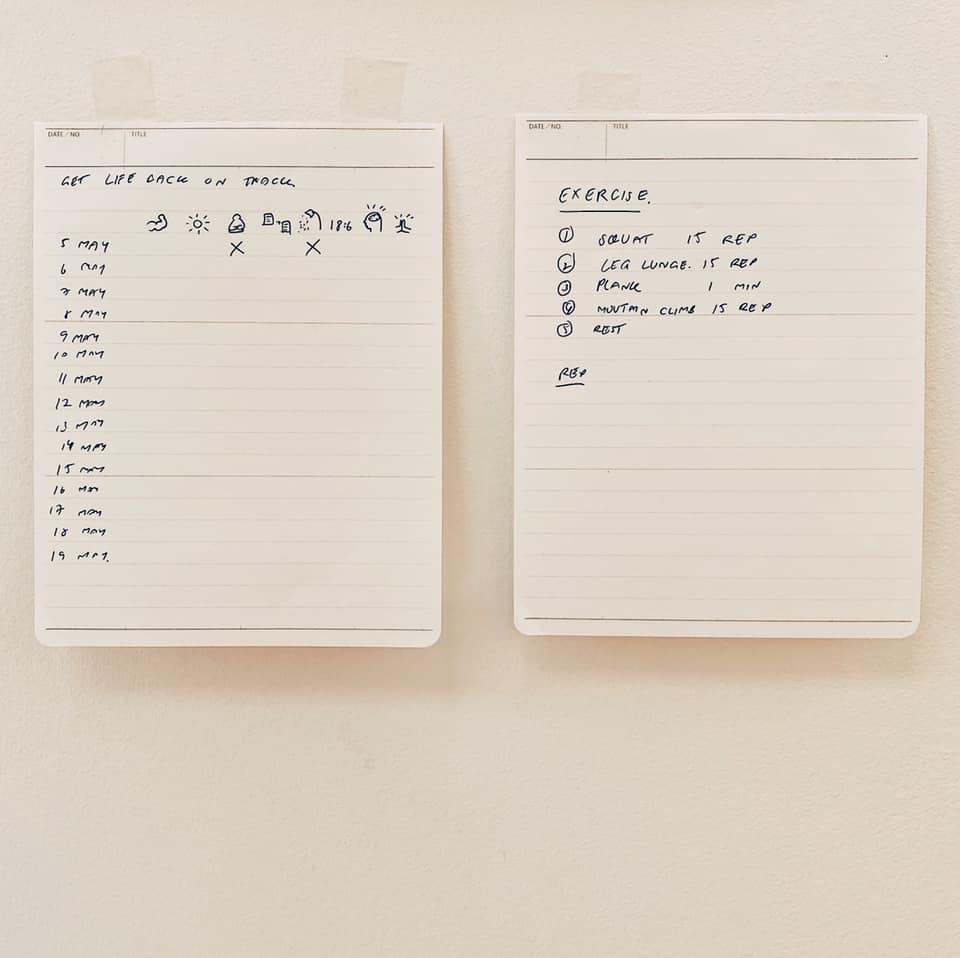 DATE/NO. TITLE
GET LIFE BACK ON TRACK
18:6
5 MAY X X
6 MAY
7 MAY
8 MAY
9 MAY
10 MAY
11 MAY
12 MAY
13 MAY
14 MAY
15 MAY
16 MAY
17 MAY
18 MAY
19 MAY.
DATE/NO. TITLE
EXERCISE.
① SQUAT 15 REP
② LEG LUNGE. 15 REP
③ PLANK 1 MIN
④ MOUTAIN CLIMB 15 REP
⑤ REST
REP